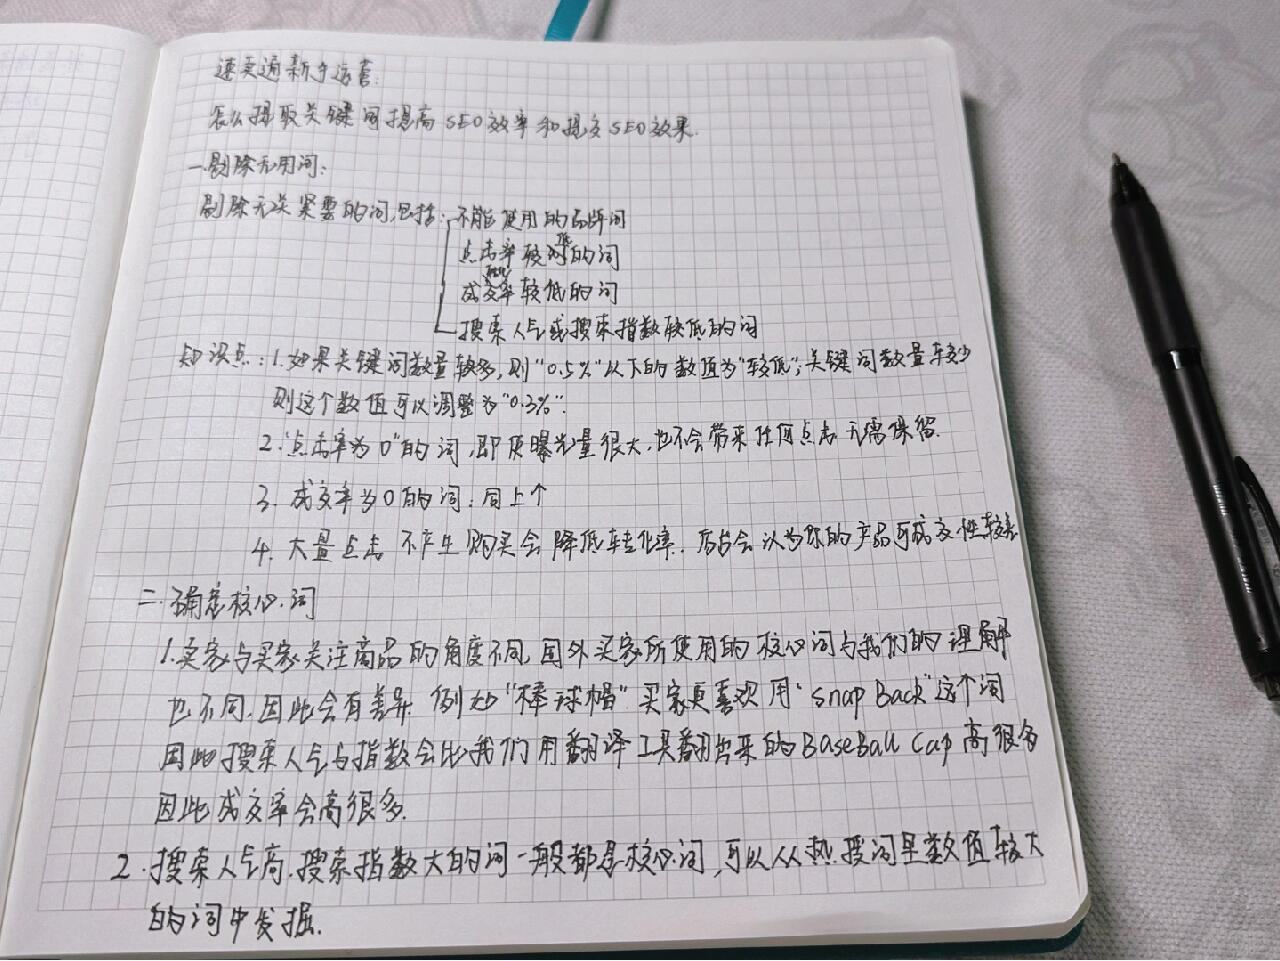 速卖通新手运营:
怎么提取关键词提高SEO效率和提交SEO效果.
一.剔除无用词:
剔除无关紧要的词,包括: 不能使用的品牌词
点击率较低的词
成交率较低的词
搜索人气或搜索指数较低的词
知识点: 1.如果关键词数量较多,则"0.5%"以下的数值为"较低",关键词数量较少
则这个数值可以调整为"0.3%".
2.'点击率为0"的词,即使曝光量很大,也不会带来任何点击 无需保留.
3. 成交率为0的词: 同上个
4. 大量点击 不产生购买会降低转化率. 后台会认为你的产品可成交性较差
二.确定核心词
1.卖家与买家关注商品的角度不同,国外买家所使用的核心词与我们的理解
也不同.因此会有差异.例如"棒球帽"买家更喜欢用"Snap Back"这个词
因此搜索人气与指数会比我们用翻译工具翻出来的BaseBall Cap高很多
因此成交率会高很多.
2.搜索人气高.搜索指数大的词一般都是核心词,可以从热搜词里数值较大
的词中发掘.